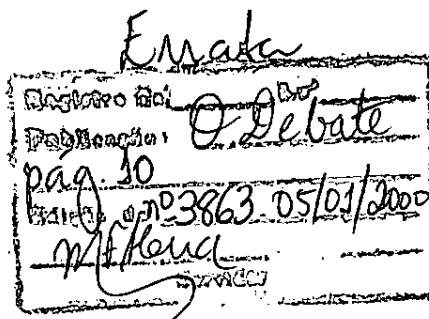 Errata
Registro
Publicação: O Debate
pág. 10
nº 3863 05/01/2000